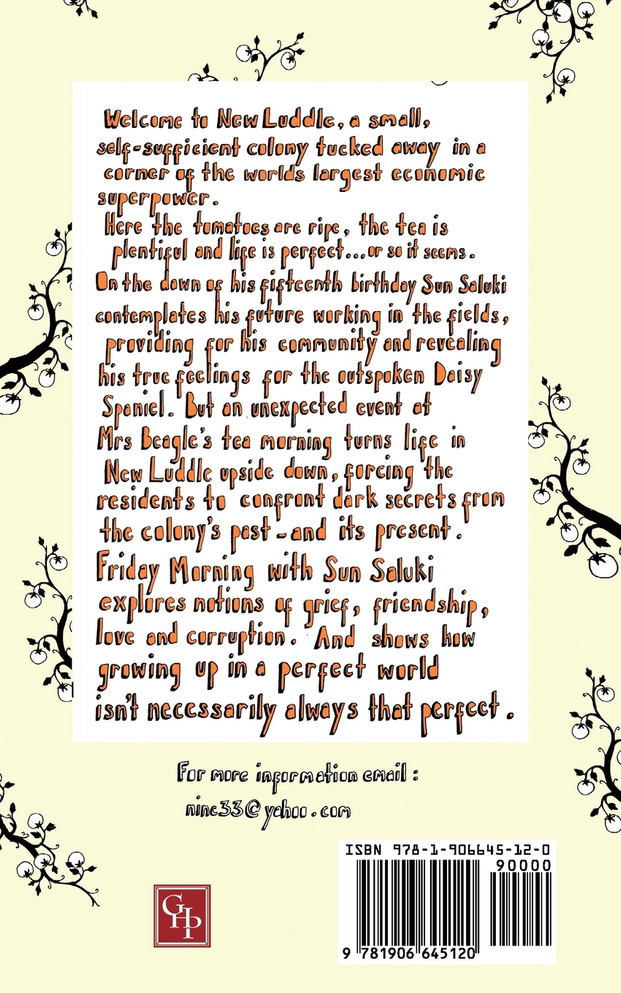 Welcome to New Luddle, a small,
self-sufficient colony tucked away in a
corner of the worlds largest economic
superpower.
Here the tomatoes are ripe, the tea is
plentiful and life is perfect...or so it seems.
On the dawn of his fifteenth birthday Sun Saluki
contemplates his future working in the fields,
providing for his community and revealing
his true feelings for the outspoken Daisy
Spaniel. But an unexpected event at
Mrs Beagle's tea morning turns life in
New Luddle upside down, forcing the
residents to confront dark secrets from
the colony's past - and its present.
Friday Morning with Sun Saluki
explores notions of grief, friendship,
love and corruption. And shows how
growing up in a perfect world
isn't necessarily always that perfect.
For more information email :
nine33@yahoo.com
ISBN 978-1-906645-12-0
90000
9 781906 645120
GHP